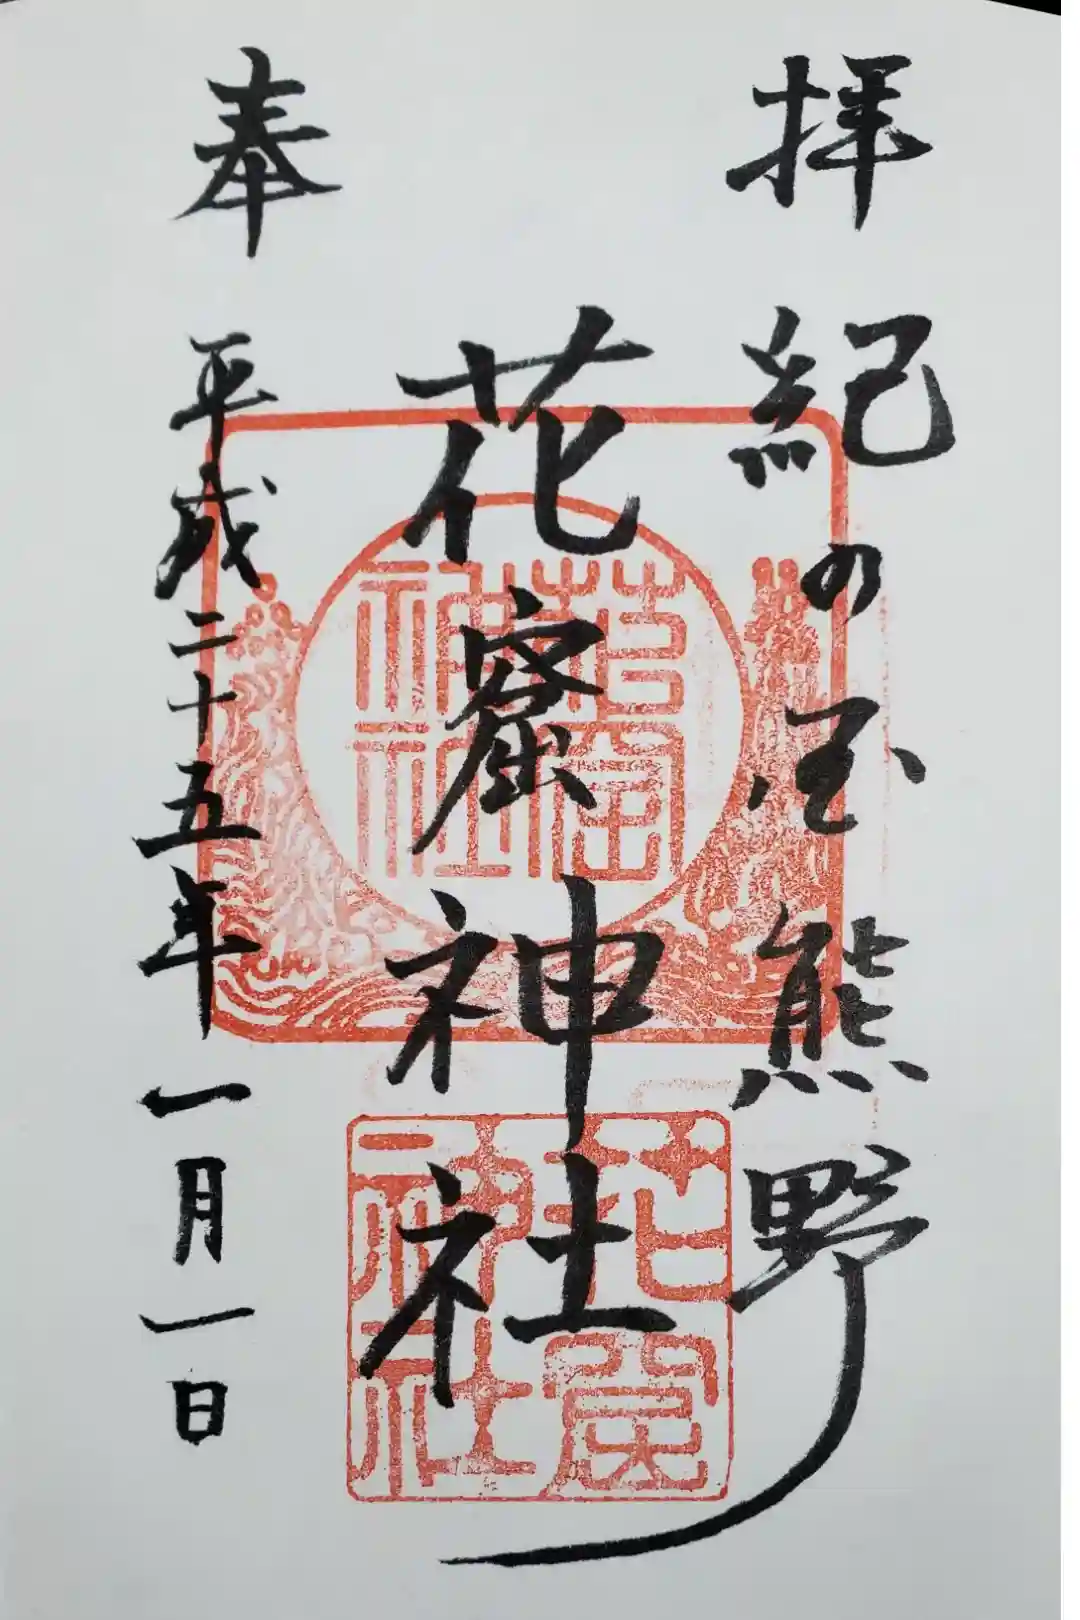 拝 紀の国熊野
花窟神社
奉 平成二十五年一月一日
花窟
神社
花窟
神社